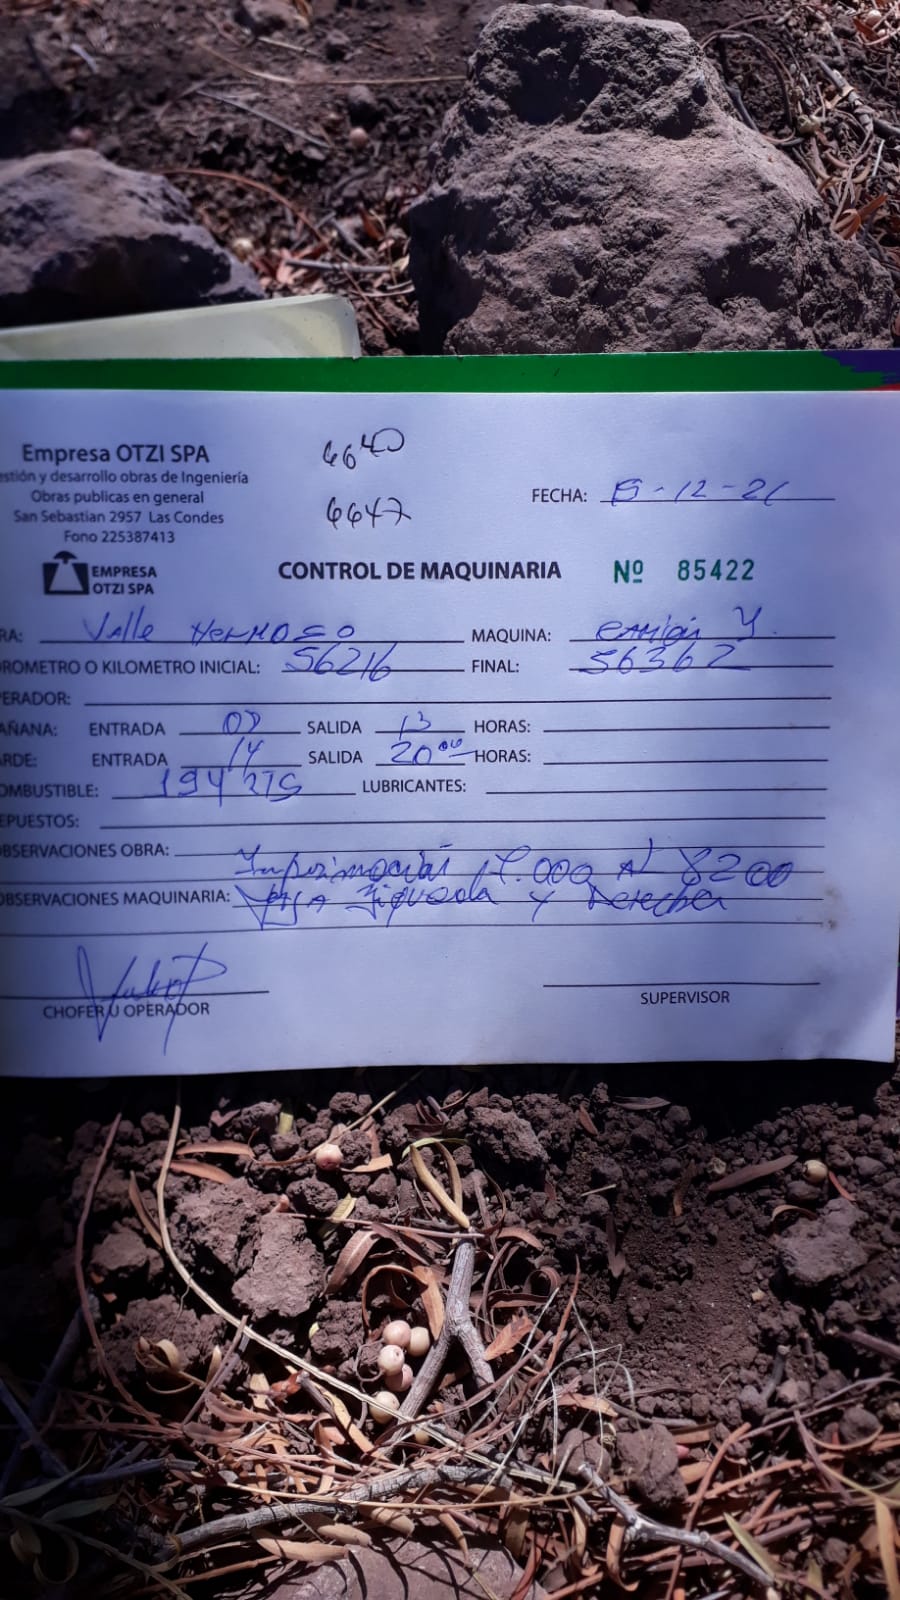 Empresa OTZI SPA
estión y desarrollo obras de Ingeniería
Obras publicas en general
San Sebastian 2957 Las Condes
Fono 225387413
EMPRESA
OTZI SPA
6640
6647
FECHA: 15-12-21
CONTROL DE MAQUINARIA Nº 85422
RA: Valle Hermoso MAQUINA: camión
OROMETRO O KILOMETRO INICIAL: 56216 FINAL: 56362
PERADOR:
AÑANA: ENTRADA 08 SALIDA 13 HORAS:
ARDE: ENTRADA 14 SALIDA 20 HORAS:
OMBUSTIBLE: 194 LTS LUBRICANTES:
EPUESTOS:
OBSERVACIONES OBRA: 7.000 Al 8200
OBSERVACIONES MAQUINARIA: Izquierda y Derecha
CHOFER U OPERADOR
SUPERVISOR